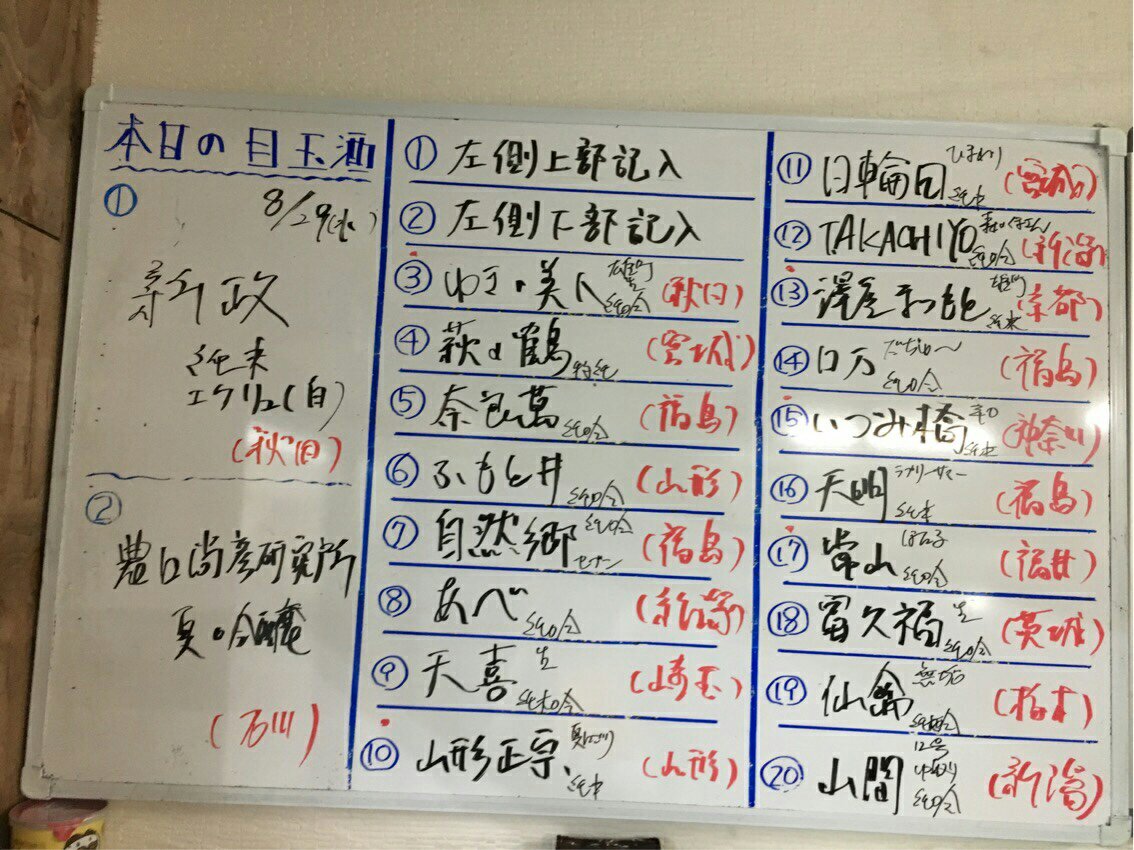 本日の目玉酒
①
8/29(水)
新政
純米
エクリュ(白)
(秋田)
②
農口尚彦研究所
夏の吟醸
(石川)
① 左側上部記入
② 左側下部記入
③ ゆき・美人 雄町 純吟 (秋田)
④ 萩の鶴 特純 (宮城)
⑤ 奈良萬 純吟 (福島)
⑥ ふもと井 純吟 (山形)
⑦ 自然郷 純吟 セブン (福島)
⑧ あべ 純吟 (新潟)
⑨ 天喜 生 純吟 (埼玉)
⑩ 山形正宗 夏 純米 (山形)
⑪ 日輪田 ひまわり 純米 (宮城)
⑫ TAKACHIYO 純吟 (新潟)
⑬ 澤屋まつもと 雄町 純米 (京都)
⑭ ロ万 だぢゅー 純吟 (福島)
⑮ いづみ橋 純米 (神奈川)
⑯ 天明 ラブリーサマー 純米 (福島)
⑰ 常山 純吟 (福井)
⑱ 富久福 生 純吟 (茨城)
⑲ 仙禽 無垢 (栃木)
⑳ 山間 12号 純吟 (新潟)